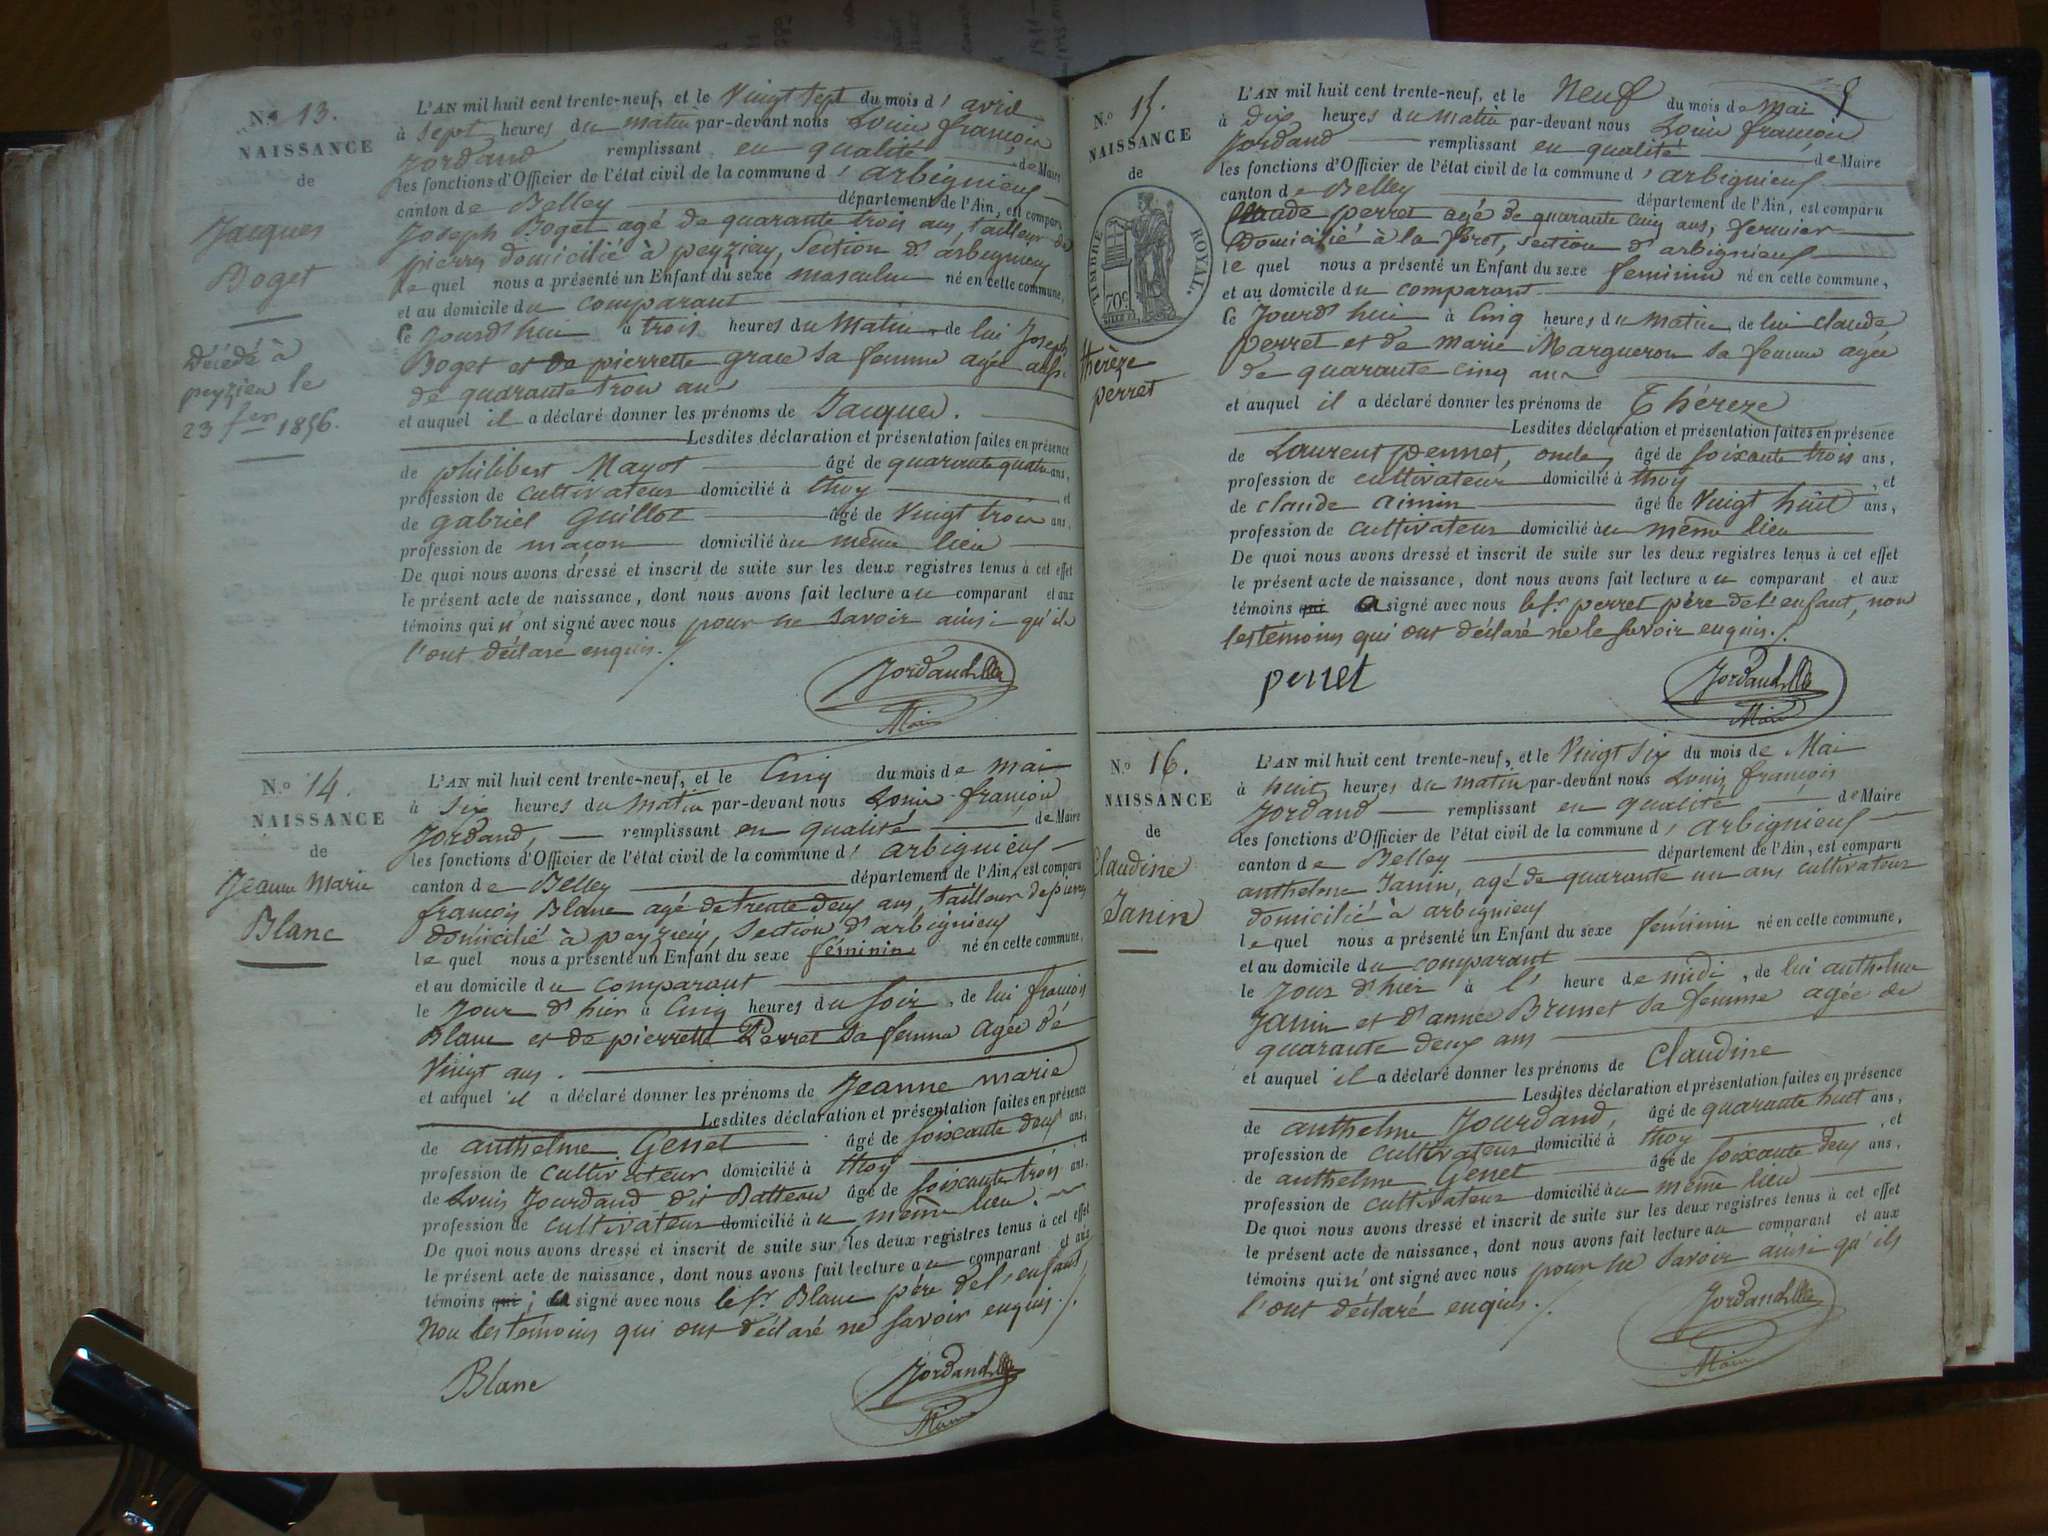 N.o 13.
NAISSANCE
de
Jacques
Boget
Décédé à
peyzieu le
23 fer 1856.
L'AN mil huit cent trente-neuf, et le Vingt sept du mois d'avril
à sept heures du matin par-devant nous Louis françois
Jordand remplissant en qualité de Maire
les fonctions d'Officier de l'état civil de la commune d'arbignieu
canton de Belley département de l'Ain, est comparu
Joseph Boget agé de quarante trois ans, tailleur de
pierres domicilié à peyzieu, section d'arbignieu
le quel nous a présenté un Enfant du sexe masculin né en cette commune,
et au domicile du comparant
le Jourd'hui à trois heures du Matin de lui Joseph
Boget et de pierrette grace sa femme agée aussi
de quarante trois ans
et auquel il a déclaré donner les prénoms de Jacques.
Lesdites déclaration et présentation faites en présence
de philibert Mayot âgé de quarante quatre ans,
profession de cultivateur domicilié à thoy et
de gabriel guillot âgé de Vingt trois ans,
profession de maçon domicilié au même lieu
De quoi nous avons dressé et inscrit de suite sur les deux registres tenus à cet effet
le présent acte de naissance, dont nous avons fait lecture au comparant et aux
témoins qui n'ont signé avec nous pour ne savoir ainsi qu'ils
l'ont déclaré enquis./.
Jordand
Maire
N.o 14.
NAISSANCE
de
Jeanne Marie
Blanc
L'AN mil huit cent trente-neuf, et le Cinq du mois de mai
à six heures du Matin par-devant nous Louis françois
Jordand, remplissant en qualité de Maire
les fonctions d'Officier de l'état civil de la commune d'arbignieu
canton de Belley département de l'Ain, est comparu
françois Blanc agé de trente deux ans, tailleur de pierres
domicilié à peyzieu, section d'arbignieu
le quel nous a présenté un Enfant du sexe féminin né en cette commune,
et au domicile du comparant
le Jour d'hier à Cinq heures du soir, de lui françois
Blanc et de pierrette Perret sa femme agée de
Vingt ans.
et auquel il a déclaré donner les prénoms de Jeanne marie
Lesdites déclaration et présentation faites en présence
de anthelme Genet âgé de soixante deux ans,
profession de cultivateur domicilié à thoy et
de Louis Jourdand dit Batteau âgé de soixante trois ans,
profession de cultivateur domicilié au même lieu.
De quoi nous avons dressé et inscrit de suite sur les deux registres tenus à cet effet
le présent acte de naissance, dont nous avons fait lecture au comparant et aux
témoins qui; a signé avec nous le sr. Blanc père de l'enfant,
Non les témoins qui ont déclaré ne savoir enquis./.
Blanc
Jordand
Maire
9
N.o 15.
NAISSANCE
de
TIMBRE ROYAL.
70c
thérèze
perret
L'AN mil huit cent trente-neuf, et le Neuf du mois de Mai
à dix heures du Matin par-devant nous Louis françois
Jordand remplissant en qualité de Maire
les fonctions d'Officier de l'état civil de la commune d'arbignieu
canton de Belley département de l'Ain, est comparu
Claude perret agé de quarante cinq ans, fermier
domicilié à la foret, section d'arbignieu
le quel nous a présenté un Enfant du sexe feminin né en cette commune,
et au domicile du comparant
le Jourd'hui à Cinq heures du matin de lui claude
perret et de marie Margueron sa femme agée
de quarante cinq ans
et auquel il a déclaré donner les prénoms de Théreze
Lesdites déclaration et présentation faites en présence
de Laurent pennet, oncle, âgé de soixante trois ans,
profession de cultivateur domicilié à thoy, et
de claude aimin âgé de Vingt huit ans,
profession de cultivateur domicilié au même lieu
De quoi nous avons dressé et inscrit de suite sur les deux registres tenus à cet effet
le présent acte de naissance, dont nous avons fait lecture au comparant et aux
témoins qui a signé avec nous le sr. perret père de l'enfant, non
les témoins qui ont déclaré ne le savoir enquis./.
perret
Jordand
Maire
N.o 16.
NAISSANCE
de
Claudine
Janin
L'AN mil huit cent trente-neuf, et le Vingt six du mois de Mai
à huit heures du matin par-devant nous Louis françois
Jordand remplissant en qualité de Maire
les fonctions d'Officier de l'état civil de la commune d'arbignieu
canton de Belley département de l'Ain, est comparu
anthelme Janin, agé de quarante un ans cultivateur
domicilié à arbignieu
le quel nous a présenté un Enfant du sexe féminin né en cette commune,
et au domicile du comparant
le Jour d'hier à l'heure de midi, de lui anthelme
Janin et d'année Brunet sa femme agée de
quarante deux ans
et auquel il a déclaré donner les prénoms de Claudine
Lesdites déclaration et présentation faites en présence
de anthelme Jourdand, âgé de quarante huit ans,
profession de cultivateur domicilié à thoy, et
de anthelme Genet âgé de soixante deux ans,
profession de cultivateur domicilié au même lieu
De quoi nous avons dressé et inscrit de suite sur les deux registres tenus à cet effet
le présent acte de naissance, dont nous avons fait lecture au comparant et aux
témoins qui n'ont signé avec nous pour ne savoir ainsi qu'ils
l'ont déclaré enquis./.
Jordand
Maire